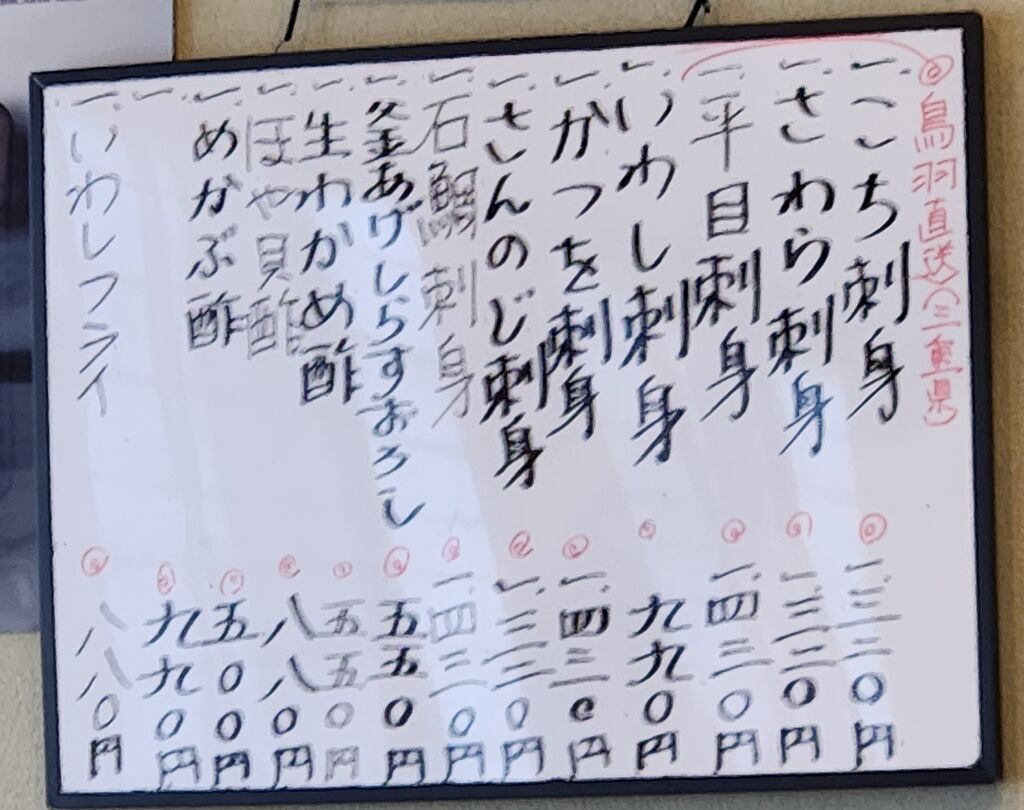 ◎鳥羽直送(三重県)
一、こち刺身 一、三二〇円
一、さわら刺身 一、三二〇円
一、平目刺身 一、四三〇円
一、いわし刺身 九九〇円
一、かつを刺身 一、四三〇円
一、さんのじ刺身 一、三二〇円
一、石鯛刺身 一、四三〇円
一、釜あげしらすおろし 五五〇円
一、生わかめ酢 五五〇円
一、ほや貝酢 八八〇円
一、めかぶ酢 五〇〇円
一、 九九〇円
一、いわしフライ 八八〇円